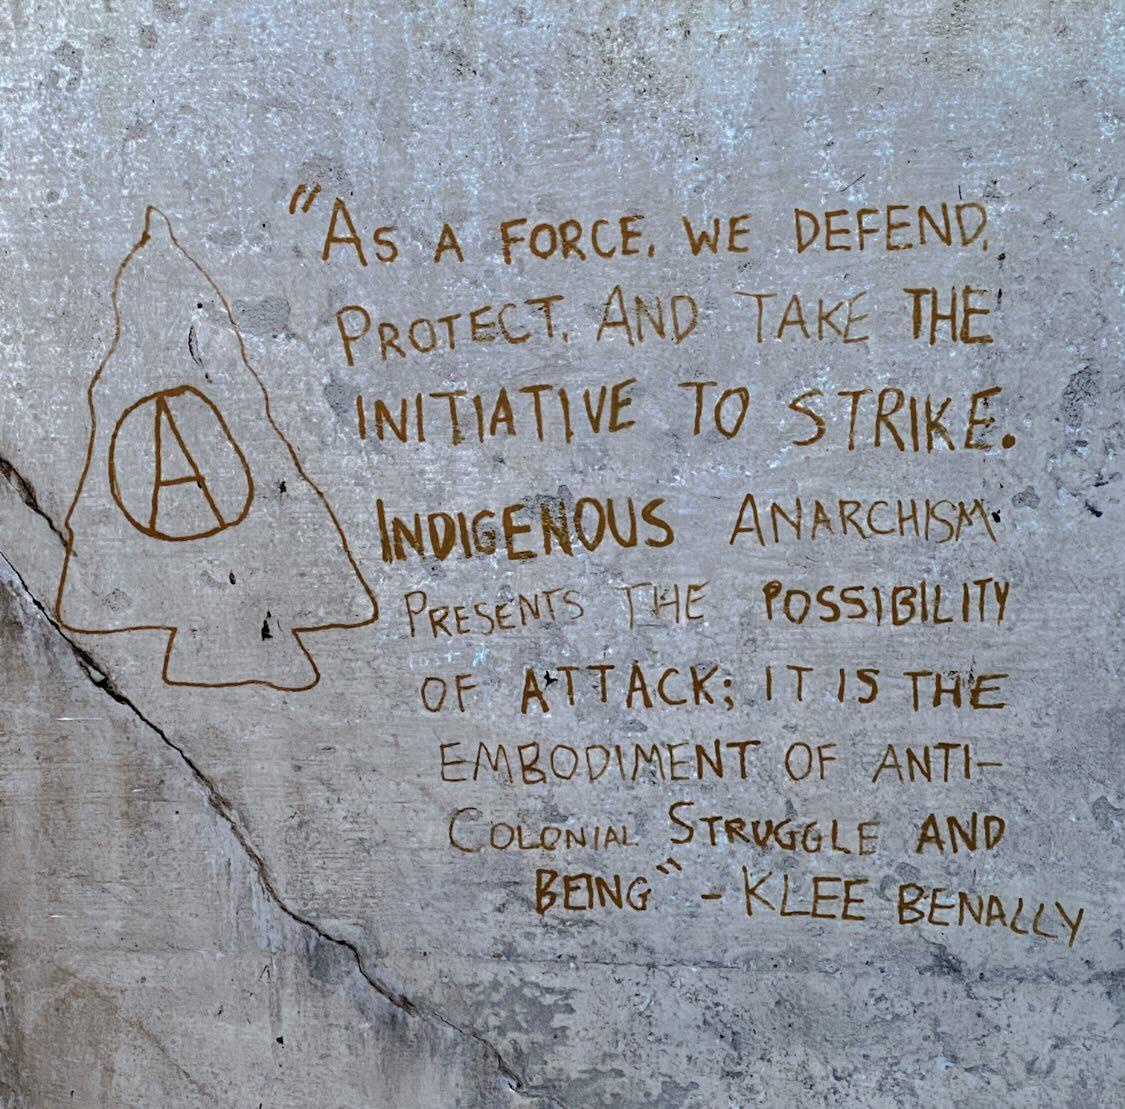 "AS A FORCE, WE DEFEND,
PROTECT, AND TAKE THE
INITIATIVE TO STRIKE.
INDIGENOUS ANARCHISM
PRESENTS THE POSSIBILITY
OF ATTACK; IT IS THE
EMBODIMENT OF ANTI-
COLONIAL STRUGGLE AND
BEING" - KLEE BENALLY
A